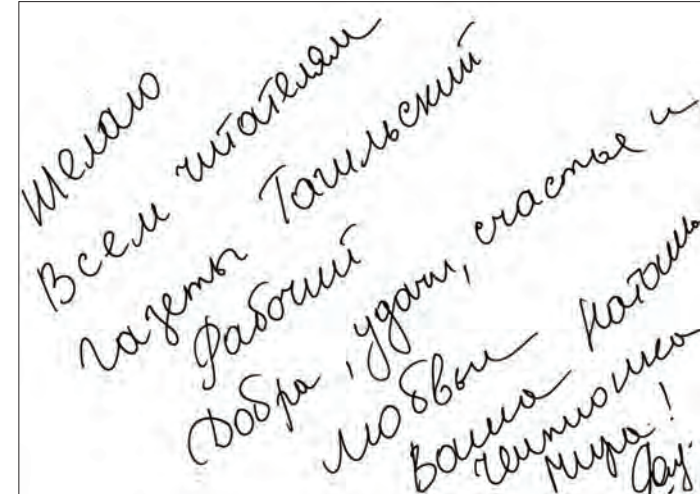 Желаю
Всем читателям
газеты Тагильский
Рабочий
Добра, удачи, счастье и
любви
Ваша Наташа
чемпионка
Мира!